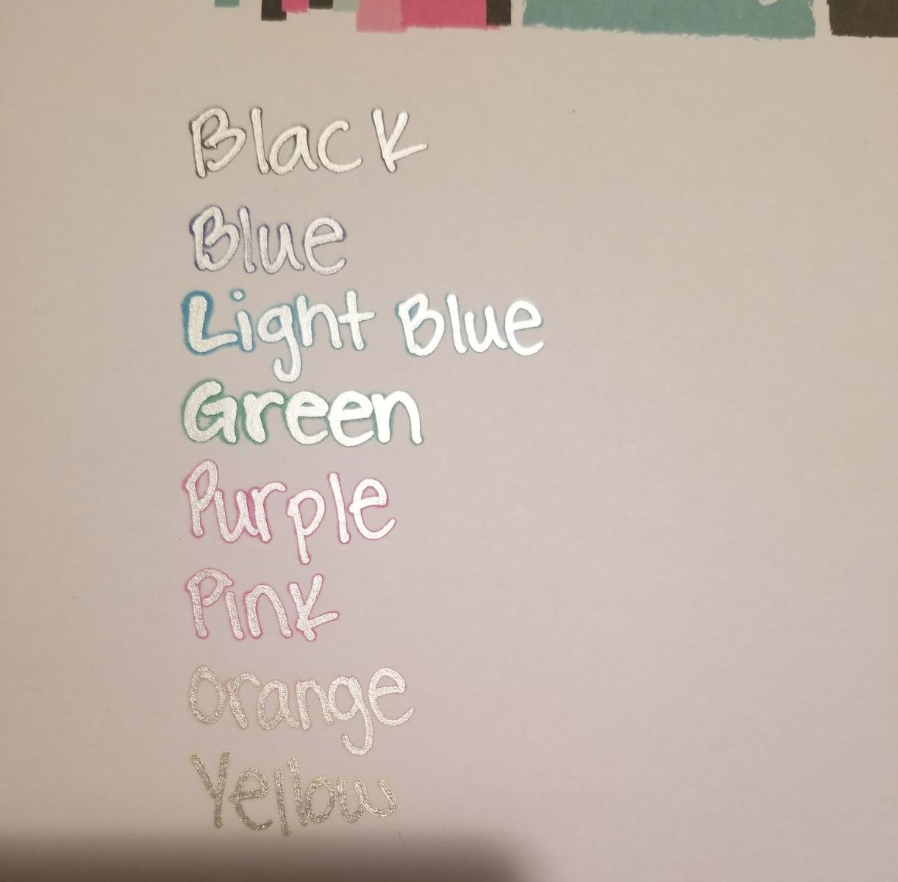 Black
Blue
Light Blue
Green
Purple
Pink
Orange
Yellow